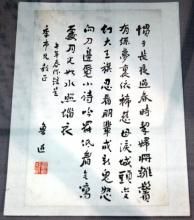 慣于長夜過春時挈婦將雛鬢
有絲夢裏依稀慈母淚城頭變
幻大王旗忍看朋輩成新鬼怒
向刀邊覓小詩吟罷低眉無寫
處月光如水照緇衣
年春作錄呈
季市兄教正
魯迅